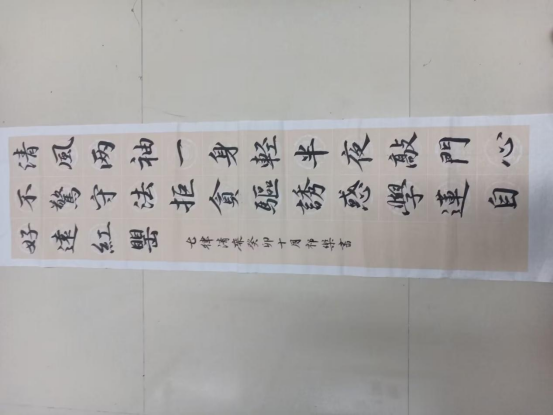 清風两袖一身輕半夜敲門心
不驚守法拒貪驅誘惑學蓮自
好遠紅罌
七律清廉癸卯十月祁樂書